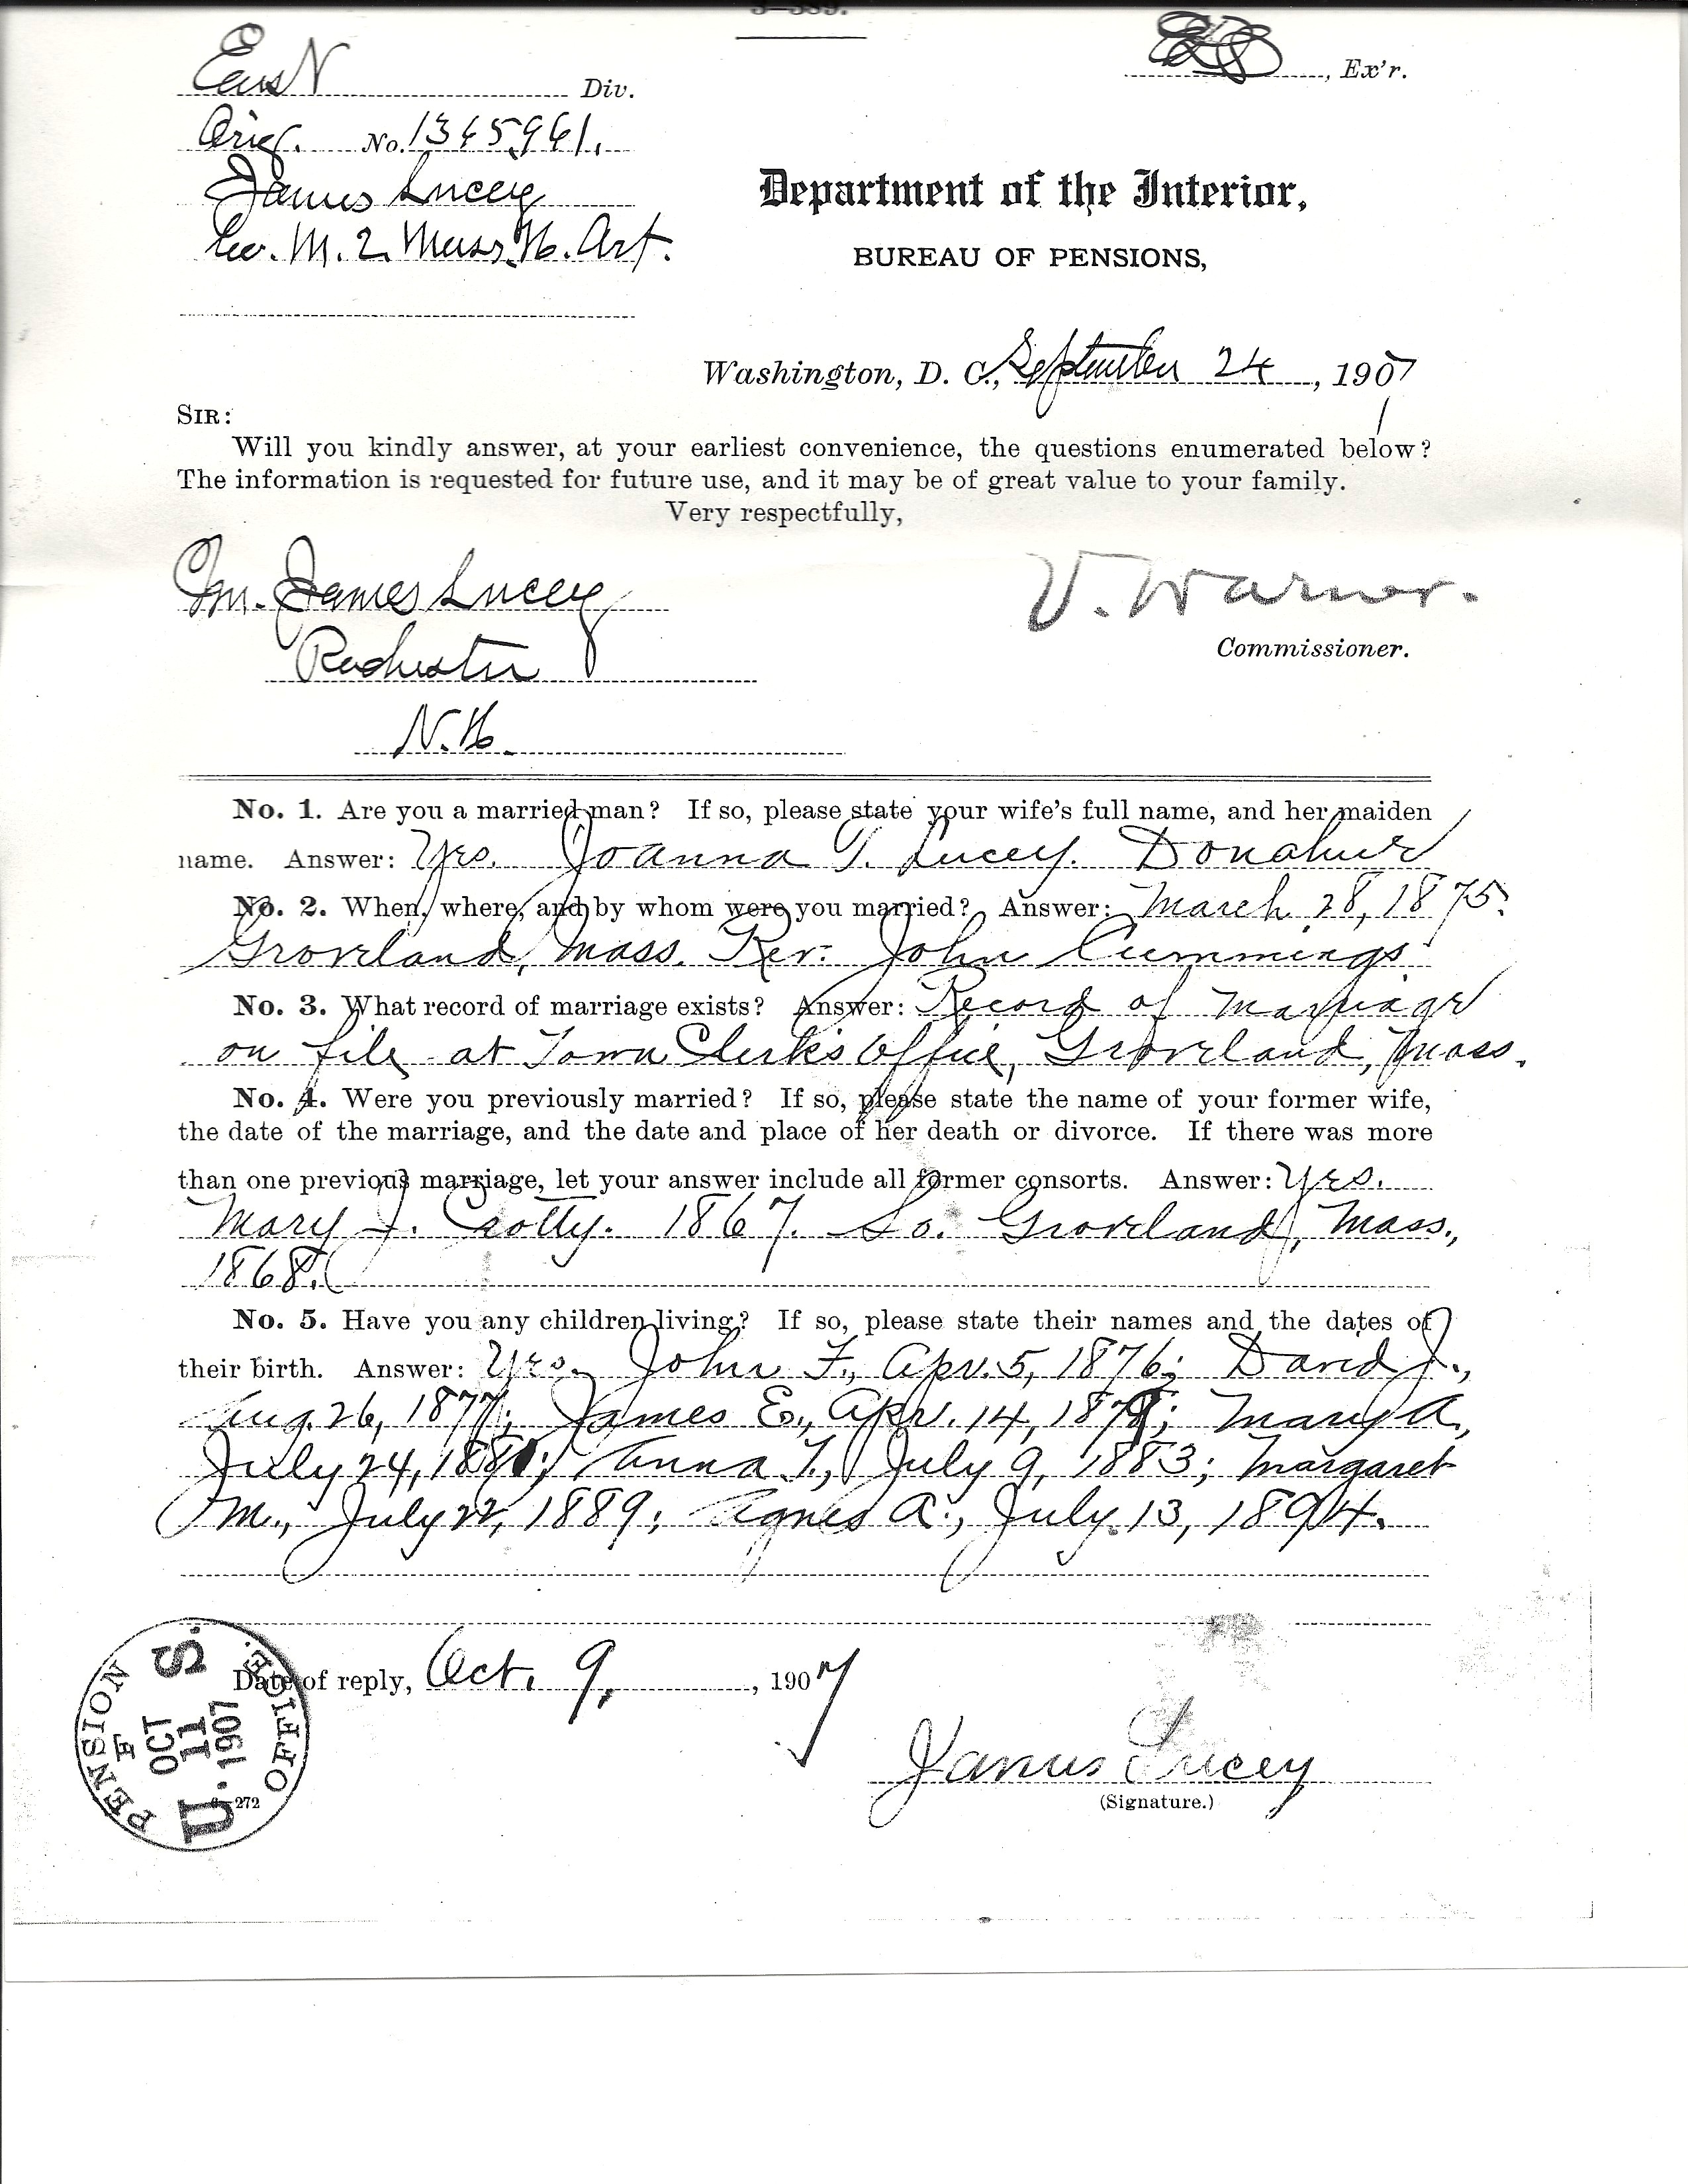 3—389.
Div.
, Ex'r.
Orig. No. 1365961.
James Lucey
Co. M. 2 Mass. H. Art.
Department of the Interior,
BUREAU OF PENSIONS,
Washington, D. C., September 24, 1907
SIR:
Will you kindly answer, at your earliest convenience, the questions enumerated below?
The information is requested for future use, and it may be of great value to your family.
Very respectfully,
Mr. James Lucey
V. Warner.
Rochester
Commissioner.
N.H.
No. 1. Are you a married man? If so, please state your wife's full name, and her maiden
name. Answer: Yes. Joanna T. Lucey. Donahue
No. 2. When, where, and by whom were you married? Answer: March 28, 1875.
Groveland, Mass. Rev. John Cummings.
No. 3. What record of marriage exists? Answer: Record of marriage
on file at Town Clerk's Office, Groveland, Mass.
No. 4. Were you previously married? If so, please state the name of your former wife,
the date of the marriage, and the date and place of her death or divorce. If there was more
than one previous marriage, let your answer include all former consorts. Answer: Yes.
Mary J. Crotty. 1867. So. Groveland, Mass.,
1868.
No. 5. Have you any children living? If so, please state their names and the dates of
their birth. Answer: Yes. John F., Apr. 5, 1876; David J.,
Aug. 26, 1877; James E., Apr. 14, 1879; Mary A.,
July 24, 1881; Anna T., July 9, 1883; Margaret
M., July 22, 1889; Agnes A., July 13, 1894.
Date of reply, Oct. 9, 1907
James Lucey
(Signature.)
U. S. PENSION OFFICE.
F
OCT
11
1907
6—272